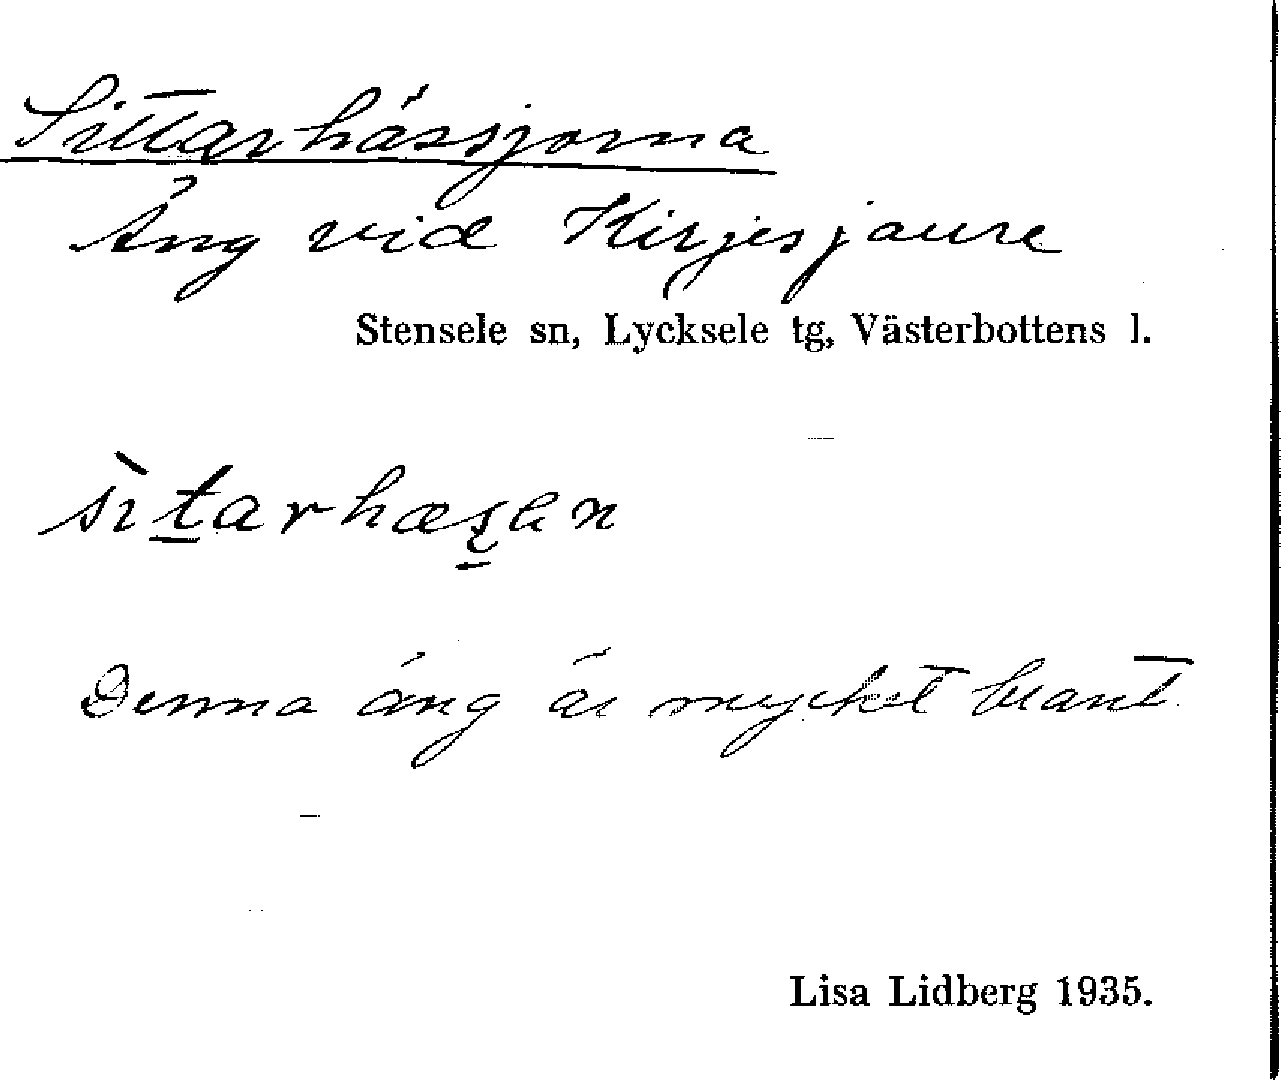 Sittarhässjorna
Äng vid Kirjesjaure
Stensele sn, Lycksele tg, Västerbottens l.
Denna äng är mycket brant.
Lisa Lidberg 1935.